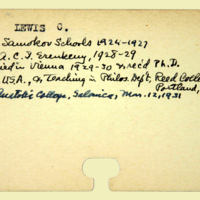 LEWIS C.
Samokov Schools 1924-1927
A.C.I. 1928-29
ied in Vienna 1929-30 & rec'd Ph.D.
USA., Teaching in Philos. Dept, Reed Colle
Portland,
College, Salonica, Mar. 12, 1931